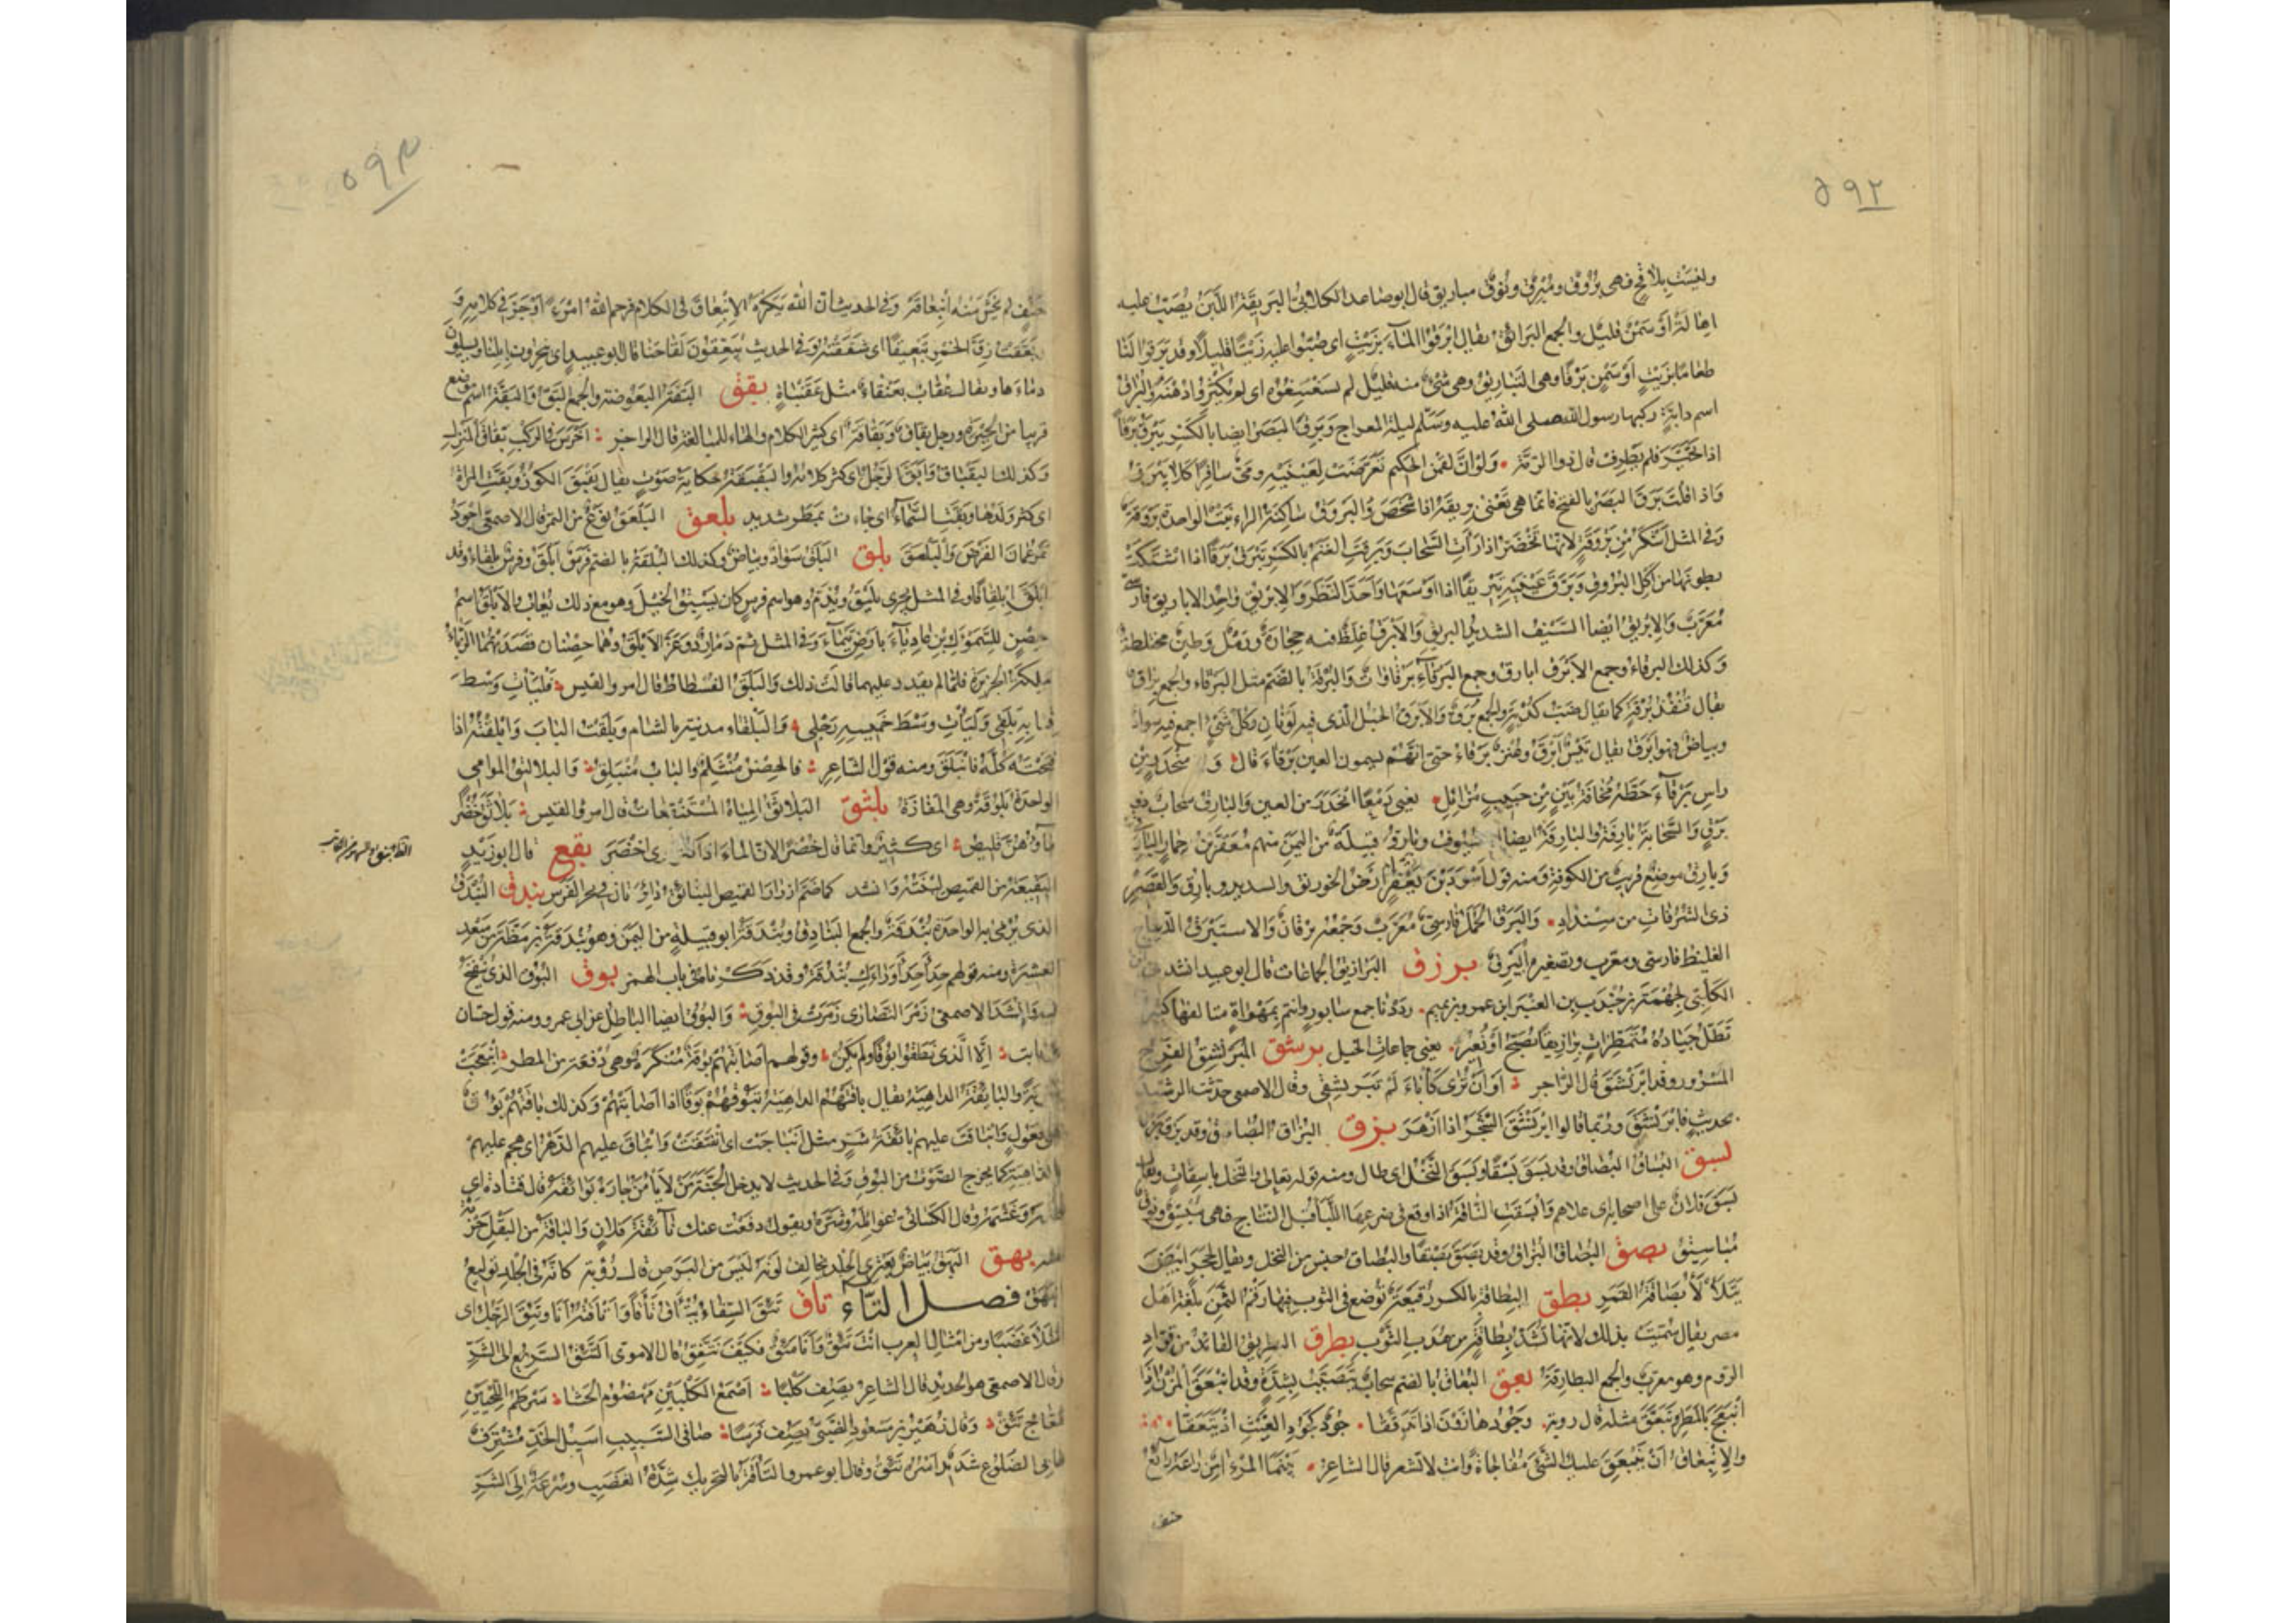 ٥٩٢
وليست بلاقح فهي بَرُوق ومُبْرِق ونُوق مباريق قال ابو صاعد الكلابيّ البَرِيقَة اللَّبَن يُصَبّ عليه
اهالة او سَمْن قليل والجمع البَرائق يقال ابرُقوا الماء بزيت اى صُبّوا عليه زيتا قليلا وقد برقوا لنا
طعاما بزيت او سمن بَرْقا وهى التَّباريق وهى شئ منه قليل لم يسغسغوه اى لم يكثروا دهنه والبراق
اسم دابّة ركبها رسول الله صلى الله عليه وسلم ليلة المعراج وبَرِق البَصَر ايضا بالكسر يَبْرَق بَرَقا
اذا تحيّر فلم يطرف قال ذو الرمّة ولو انّ لقمن الحكيم تعرّضت لعينيه مىّ سافرا كاد يبرق
واذا قلت بَرَق البصر بالفتح فانما هى تعنى بريقه اذا شخص والبَرْوق ساكنة الراء نبت الواحدة بروقة
وفى المثل اشكر من بروقة لانها تخضر اذا رأت السحاب وبَرِقت الغنم بالكسر تبرق برقا اذا اشتكت
بطونها من اكل البروق وبرّق عينيه تبريقا اذا اوسعهما واحدّ النظر والابريق واحد الاباريق فارسى
معرّب والابريق ايضا السيف الشديد البريق والابرق غلظ فيه حجارة ورمل وطين مختلطة
وكذلك البرقاء وجمع الابرق ابارق وجمع البرقاء برقاوات والبُرقة بالضم مثل البرقاء والجمع براق
يقال قنفذ برقة كما يقال ضب كدية والجمع بُرَق والابرق الحبل الذى فيه لونان وكل شئ اجتمع فيه سواد
وبياض فهو ابرق يقال تيس ابرق وعنز برقاء حتى انهم يسمون العين برقاء قال ومنحدر من
راس برقاء حطّه مخافة بين من حبيب مزايل يعنى دمعا انحدر من العين والبارق سحاب ذو
برق والسحابة بارقة والبارقة ايضا السيوف وبارق قبيلة من اليمن منهم معقّر بن حمار البارقى
وبارق موضع قريب من الكوفة ومنه قول اسود بن يعفر ارض الخورنق والسدير وبارق والقصر
ذى الشرفات من سنداد والبَرَق الحَمَل فارسىّ معرّب وجمعه برقان والاستبرق الديباج
الغليظ فارسى معرب وتصغيره ابيرق برزق البرازيق الجماعات قال ابو عبيد انشد
الكلبى لجهمة بن جندب بن العنبر ابن عمرو بن تميم رددنا جمع سابور وانتم بمهواة متالفها كثير
تظلّ جياده متمطّرات برازيقا تصبّح او تغير يعنى جماعات الخيل برشق المبرنشق الفرح
المسرور وقد ابرنشق قال الراجز او ان ترى كأباء لم تبرنشقى وقال الاصمعى حدثت الرشيد
بحديث فابرنشق وربما قالوا ابرنشق الشجر اذا ازهر بزق البزاق البصاق وقد بزق
بسق البساق البصاق وقد بسق بسقا وبسق النخل اى طال ومنه قوله تعالى والنخل باسقات ويقال
بسق فلان على اصحابه اى علاهم وابسقت الناقة اذا وقع فى ضرعها اللبأ قبل النتاج فهى مبسق ونوق
مباسيق بصق البصاق البزاق وقد بصق بصقا والبصاق جنس من النخل ويقال لحجر ابيض
يتلألأ بصاقة القمر بطق البطاقة بالكسر رقيعة توضع فى الثوب فيها رقم الثمن بلغة اهل
مصر يقال سميت بذلك لانها تشد بطاقة من هدب الثوب بطرق البطريق القائد من قواد
الروم وهو معرب والجمع البطارقة بعق البعاق بالضم سحاب يتصبب بشدة وقد انبعق المزن اذا
انبعج بالمطر وتبعق مثله قال روبة وجود هارون اذا تدفقا جود كجود الغيث اذ تبعقا
والانبعاق ان ينبعق عليك الشئ مفاجاة وانت لا تشعر قال الشاعر بينما المرء امن راعه رائع
حتف
٥٩٣
حتف لم يخش منه انبعاقه وفى الحديث ان الله يكره الانبعاق فى الكلام فرحم الله امرءً اوجز فى كلامه و
بعّقت زقّ الخمر تبعيقا اى شققته وفى الحديث يبعّقون لقاحنا قال ابو عبيد اى ينحرون ابلنا ويسيلون
دماءها ويقال عقاب بعنقاة مثل عقنباة بقق البقّة البعوضة والجمع البقّ والبقّة اسم موضع
قريبا من الحيرة ورجل بقاق وبقاقة اى كثير الكلام والهاء للمبالغة قال الراجز اخرس فى الركب بقاق المنزل
وكذلك البقباق وابقّ الرجل اى كثر كلامه والبقبقة حكاية صوت يقال بقبق الكوز وبقّت المراة
اى كثر ولدها وبقّت السماء اى جاءت بمطر شديد بلعق البلعق نوع من التمر قال الاصمعى اجود
تمر عمان الفرض والبلعق بلق البلق سواد وبياض وكذلك البلقة بالضم فرس ابلق وفرس بلقاء وقد
ابلقّ ابلقاقا وفى المثل يجرى بليق ويذمّ وهو اسم فرس كان يسبق الخيل وهو مع ذلك يعاب والابلق اسم
حصن للسموئل بن عادياء بارض تيماء وفى المثل تمرّد مارد وعزّ الابلق وهما حصنان قصدتهما الزباء
ملكة الجزيرة فلما لم يقدر عليهما قالت ذلك والبلق الفسطاط قال امرو القيس فليأت وسط
قبابه بلقى وليأت وسط خميسه رجلى والبلقاء مدينة بالشام وبلقت الباب وابلقته اذا
فتحته كلّه فانبلق ومنه قول الشاعر فالحصن منثلم والباب منبلق والبلاليق الموامى
الواحدة بلّوقة وهى المفازة بلثق البلاثق المياه المستنقعات قال امرو القيس بلاثق خضر
ماؤهنّ قليص اى كثير وانما قال خضرا لان الماء اذا كثر يرى اخضر بقع قال ابو زيد
البنيقة من القميص لبنته وانشد كما ضمّ ازرار القميص البنائق بندق البندق
الذى يرمى به الواحدة بندقة والجمع البنادق وبندقة ابو قبيلة من اليمن وهو بندقة بن مظّة بن سعد
العشيرة ومنه قولهم حدأ حدأ وراءك بندقة وقد ذكرناه فى باب الهمز بوق البوق الذى ينفخ
فيه وانشد الاصمعى زمر النصارى زمرت فى البوق والبوق ايضا الباطل عن ابى عمرو ومنه قول حسان
بن ثابت الا الذى نطقوا بوقا ولم يكن وقولهم اصابتهم بوقة منكرة وهى دفعة من المطر انبعجت
ضربة والبائقة الداهية يقال باقتهم الداهية تبوقهم بوقا اذا اصابتهم وكذلك باقتهم بؤوق
على فعول وانباقت عليهم بائقة شرّ مثل انباجت اى انفتقت وانباق عليهم الدهر اى هجم عليهم
الداهية كما يخرج الصوت من البوق وفى الحديث لا يدخل الجنة من لا يأمن جاره بوائقه قال قتادة اى
ظلمه وغشمه وقال الكسائى غوائله وشرّه ويقول دفعت عنك بائقة فلان والباقة من البقل حزمة
منه بهق البهق بياض يعترى الجلد يخالف لونه ليس من البرص قال رؤبة كانه فى الجلد توليع
البهق فصل التاء تاق تئق السقاء يتأق تأقا واتأقته انا وتئق الرجل اى
امتلأ غضبا ومن امثال العرب انت تئق وانا مئق فكيف نتفق قال الاموى التئق السريع الى الشر
وقال الاصمعى هو الحديد قال الشاعر يصف كلبا اصمع الكعبين مهضوم الحشا سرطم اللحيين
معاج تئق وقال زهير بن مسعود الضبى يصف فرسا ضافى السبيب اسيل الخد مشترف
حابى الضلوع شديد اسره تئق وقال ابو عمرو التأقة بالتحريك شدة الغضب وسرعة الى الشر